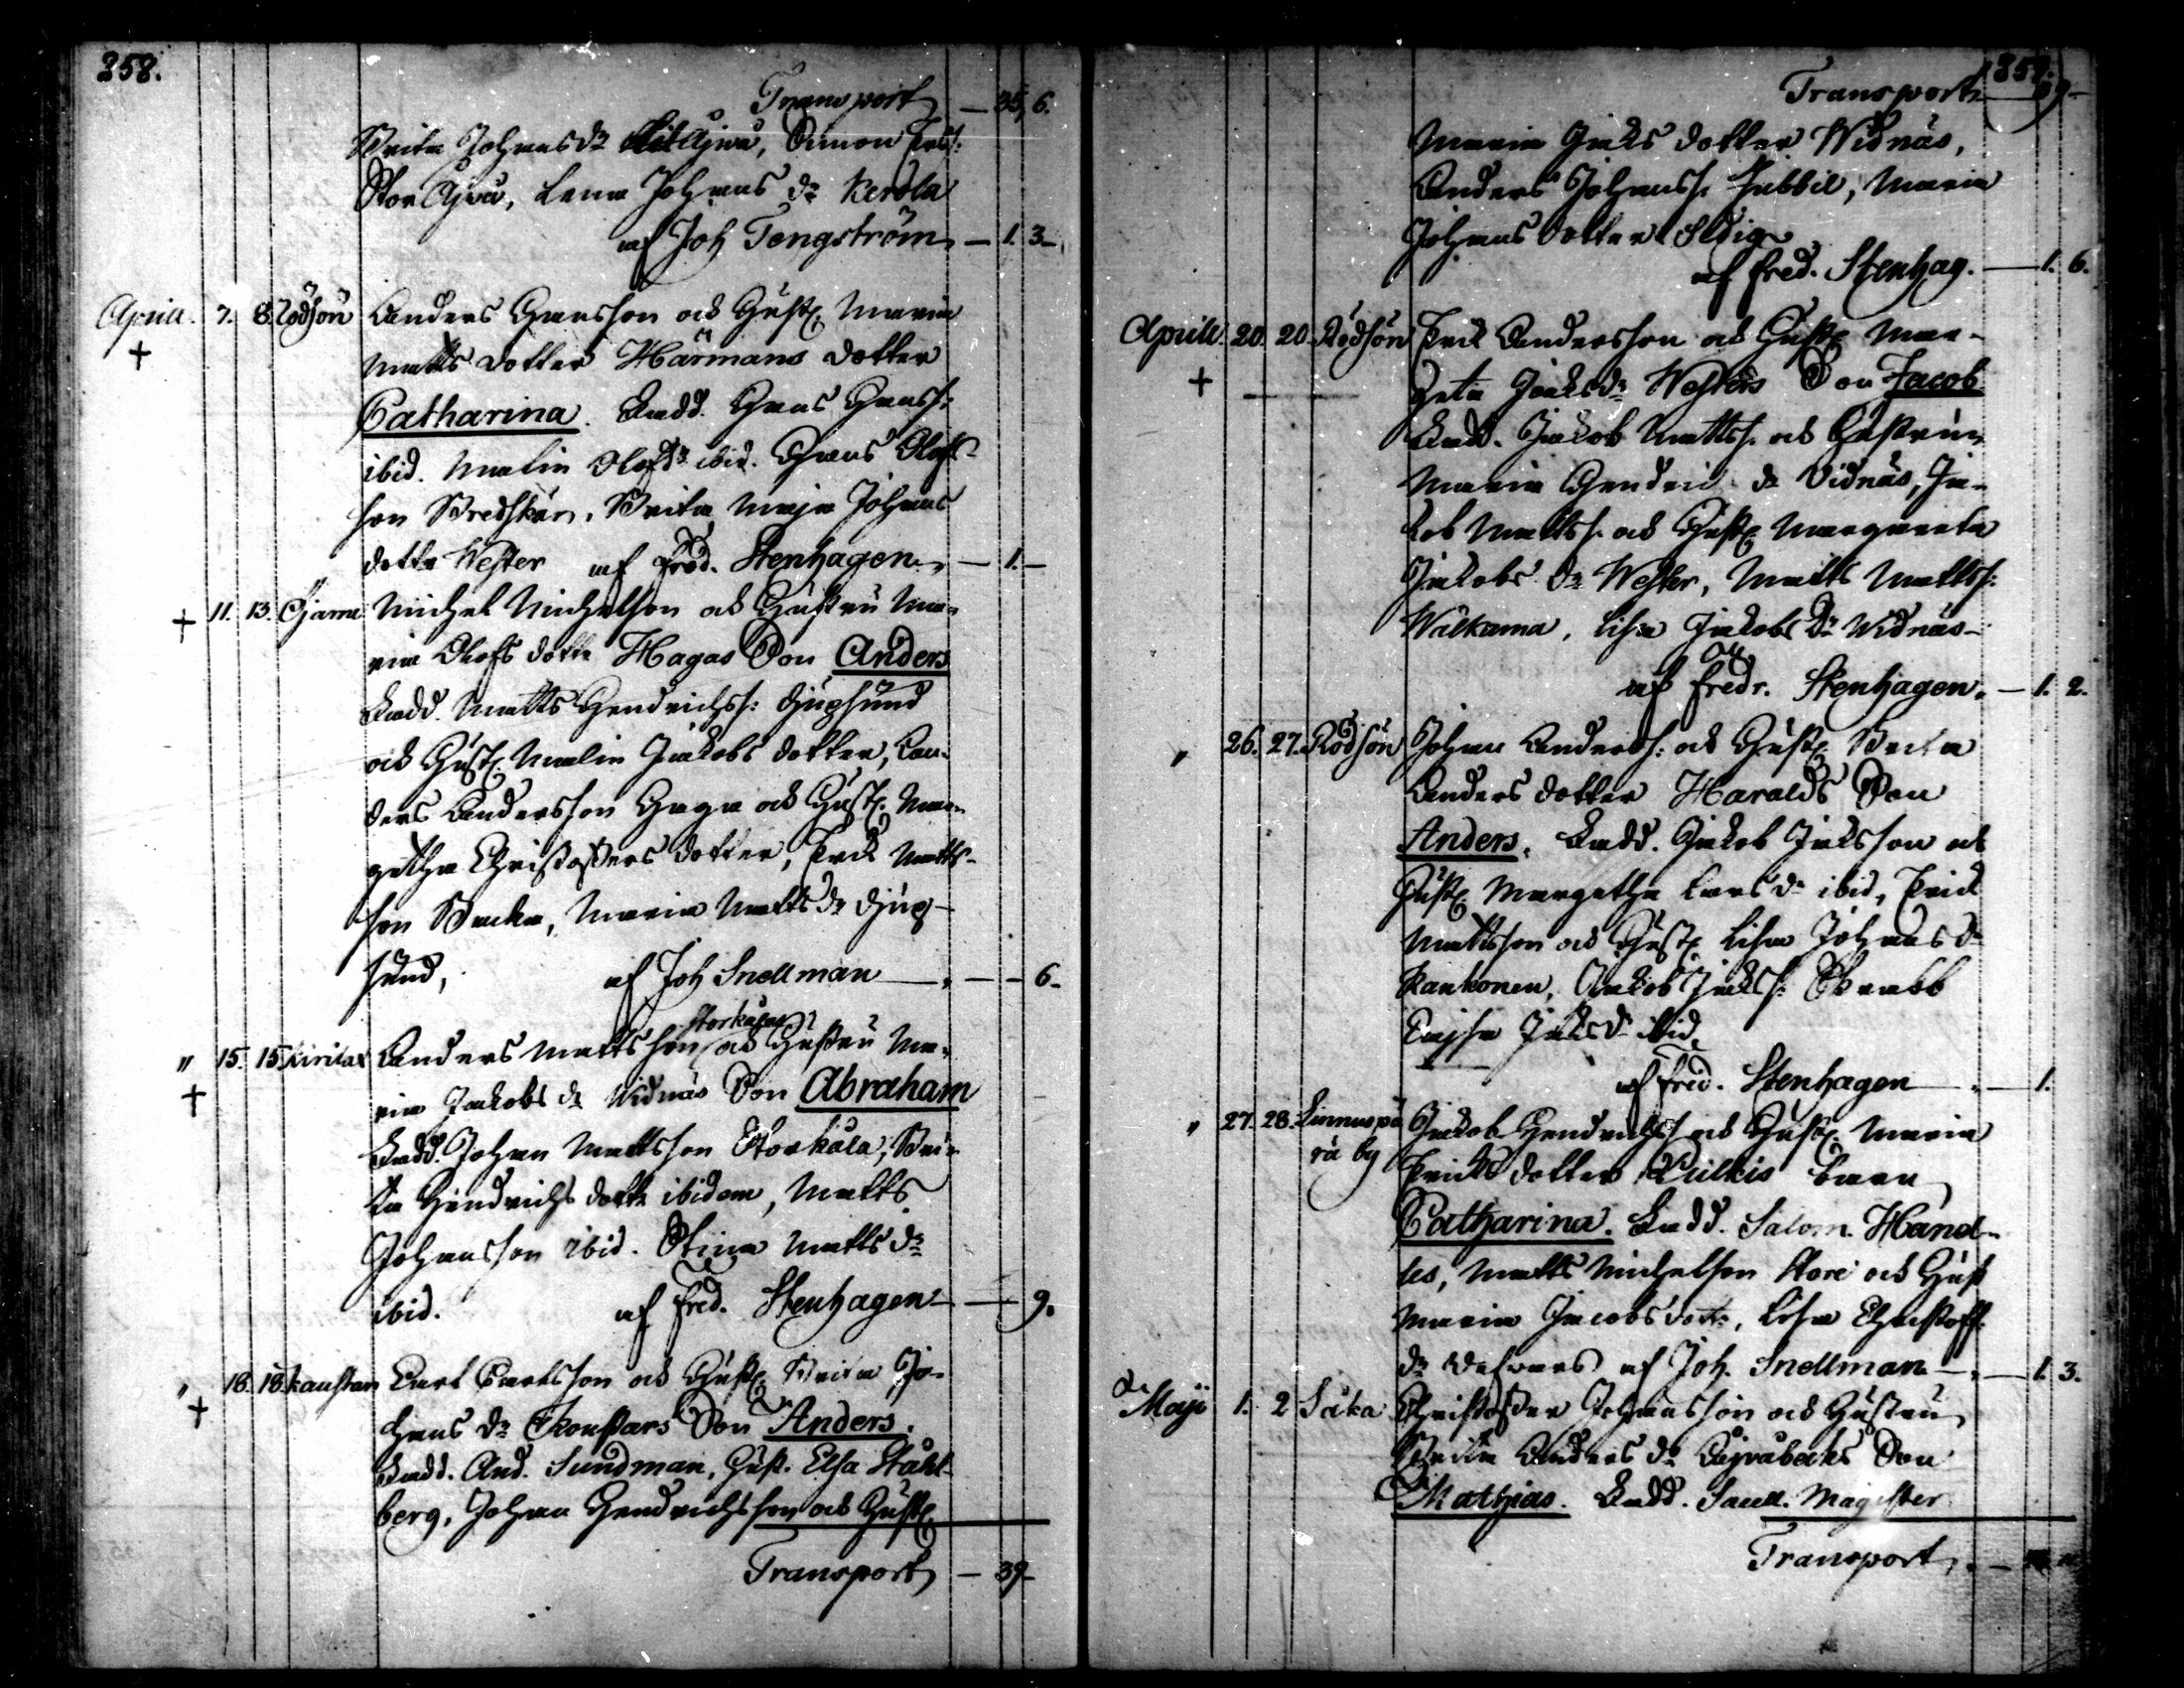 358.
Transport — 35, 6.
Brita Johansdr LillAjwa, Simon Erss.
StorAjwa, Lena Johans dr Kerola
af Joh Tengström — 1. 3.
Aprill. 7. 8. Rödsön Anders Hansson och Hustr. Maria
Matts dotter Härmans dotter
Catharina. Fadd. Hans Hanss:
ibid. Malin Olofsdr ibid. Hans Olofs-
son Bredskär, Brita Maja Johans
dotter Wester af Fred. Stenhagen — 1. —
11. 13. Gjarna Michel Michelson och Hustru Ma-
ria Olofs dotter Hagas Son Anders
Fadd. Matts Hendrichss: Djupsund
och Hustr. Malin Jakobs dotter, An-
ders Andersson Haga och Hustr. Mar-
getha Christoffers dotter, Erik Matts-
son Backa, Maria Matts dr Djup-
sund, af Joh Snellman — 6.
" 15. 15. Kirilax Anders Mattsson Storkåla och Hustru Ma-
ria Jakobs dr Widnäs Son Abraham
Fadd. Johan Mattsson Storkåla, Bri-
ta Hindrichs dotter ibidem, Matts
Johansson ibid. Stina Matts dr
ibid. af Fred. Stenhagen — 9.
" 18. 18. Kaustar Carl Carlsson och Hustr. Brita Jo-
hans dr Skonstars Son Anders.
Fadd. And. Sundman, Hust. Elsa Stahl-
berg, Johan Hendrichsson och Hustr.
Transport — 39 —
359.
Transport — 39 —
Maria Jacks dotter Widnäs,
Anders Johanss. Fabbil, Maria
Johans dotter Sedig
af Fred. Stenhag. — 1. 6.
Aprill. 20. 20. Rödsön Erik Andersson och Hustr. Mar-
geta Jacksdr Westers Son Jacob
Fadd. Jakob Mattss. och Hustru
Maria Hendric dr Vidnäs, Ja-
kob Mattss. och Hustr. Margareta
Jakobs dr Wester, Matts Mattss:
Wälkama, Lisa Jakobs dr Widnäs
af Fredr. Stenhagen. — 1. 2.
" 26. 27. Rödsön Johan Anderss: och Hustr. Brita
Anders dotter Haralds Son
Anders. Fadd. Jakob Jacksson och
Hustr. Margetha Lars dr ibid, Erick
Mattsson och Hustr. Lisa Johans dr
Kankonen, Jakob Jackss: Skrabb
Cajsa Jacksdr ibid,
af Fred. Stenhagen — 1.
" 27. 28. Linnuspä
rä by Jakob Hendrichss. och Hustr. Maria
Ericks dotter Kulkis barn
Catharina. Fadd. Salom. Hand-
les, Matts Michelson Store och Hust
Maria Jacobs dotr, Lisa Christoff.
dr af Joh. Snellman — 1. 3.
Maji 1. 2 Såka Christoffer Johansson och Hustru
Brita Anders dr Ajvabacks Son
Mathias. Fadd. Saul. Magister
Transport —